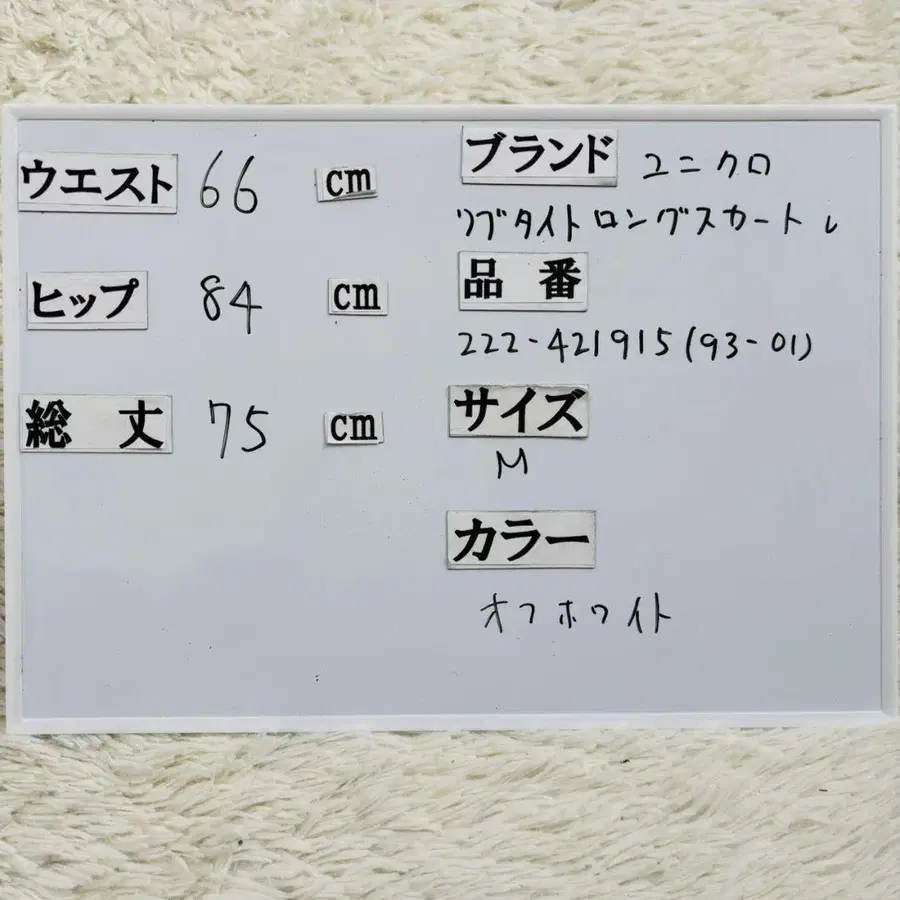 ウエスト 66 cm
ヒップ 84 cm
総丈 75 cm
ブランド ユニクロ
リブタイトロングスカート レ
品番
222-421915(93-01)
サイズ
M
カラー
オフホワイト